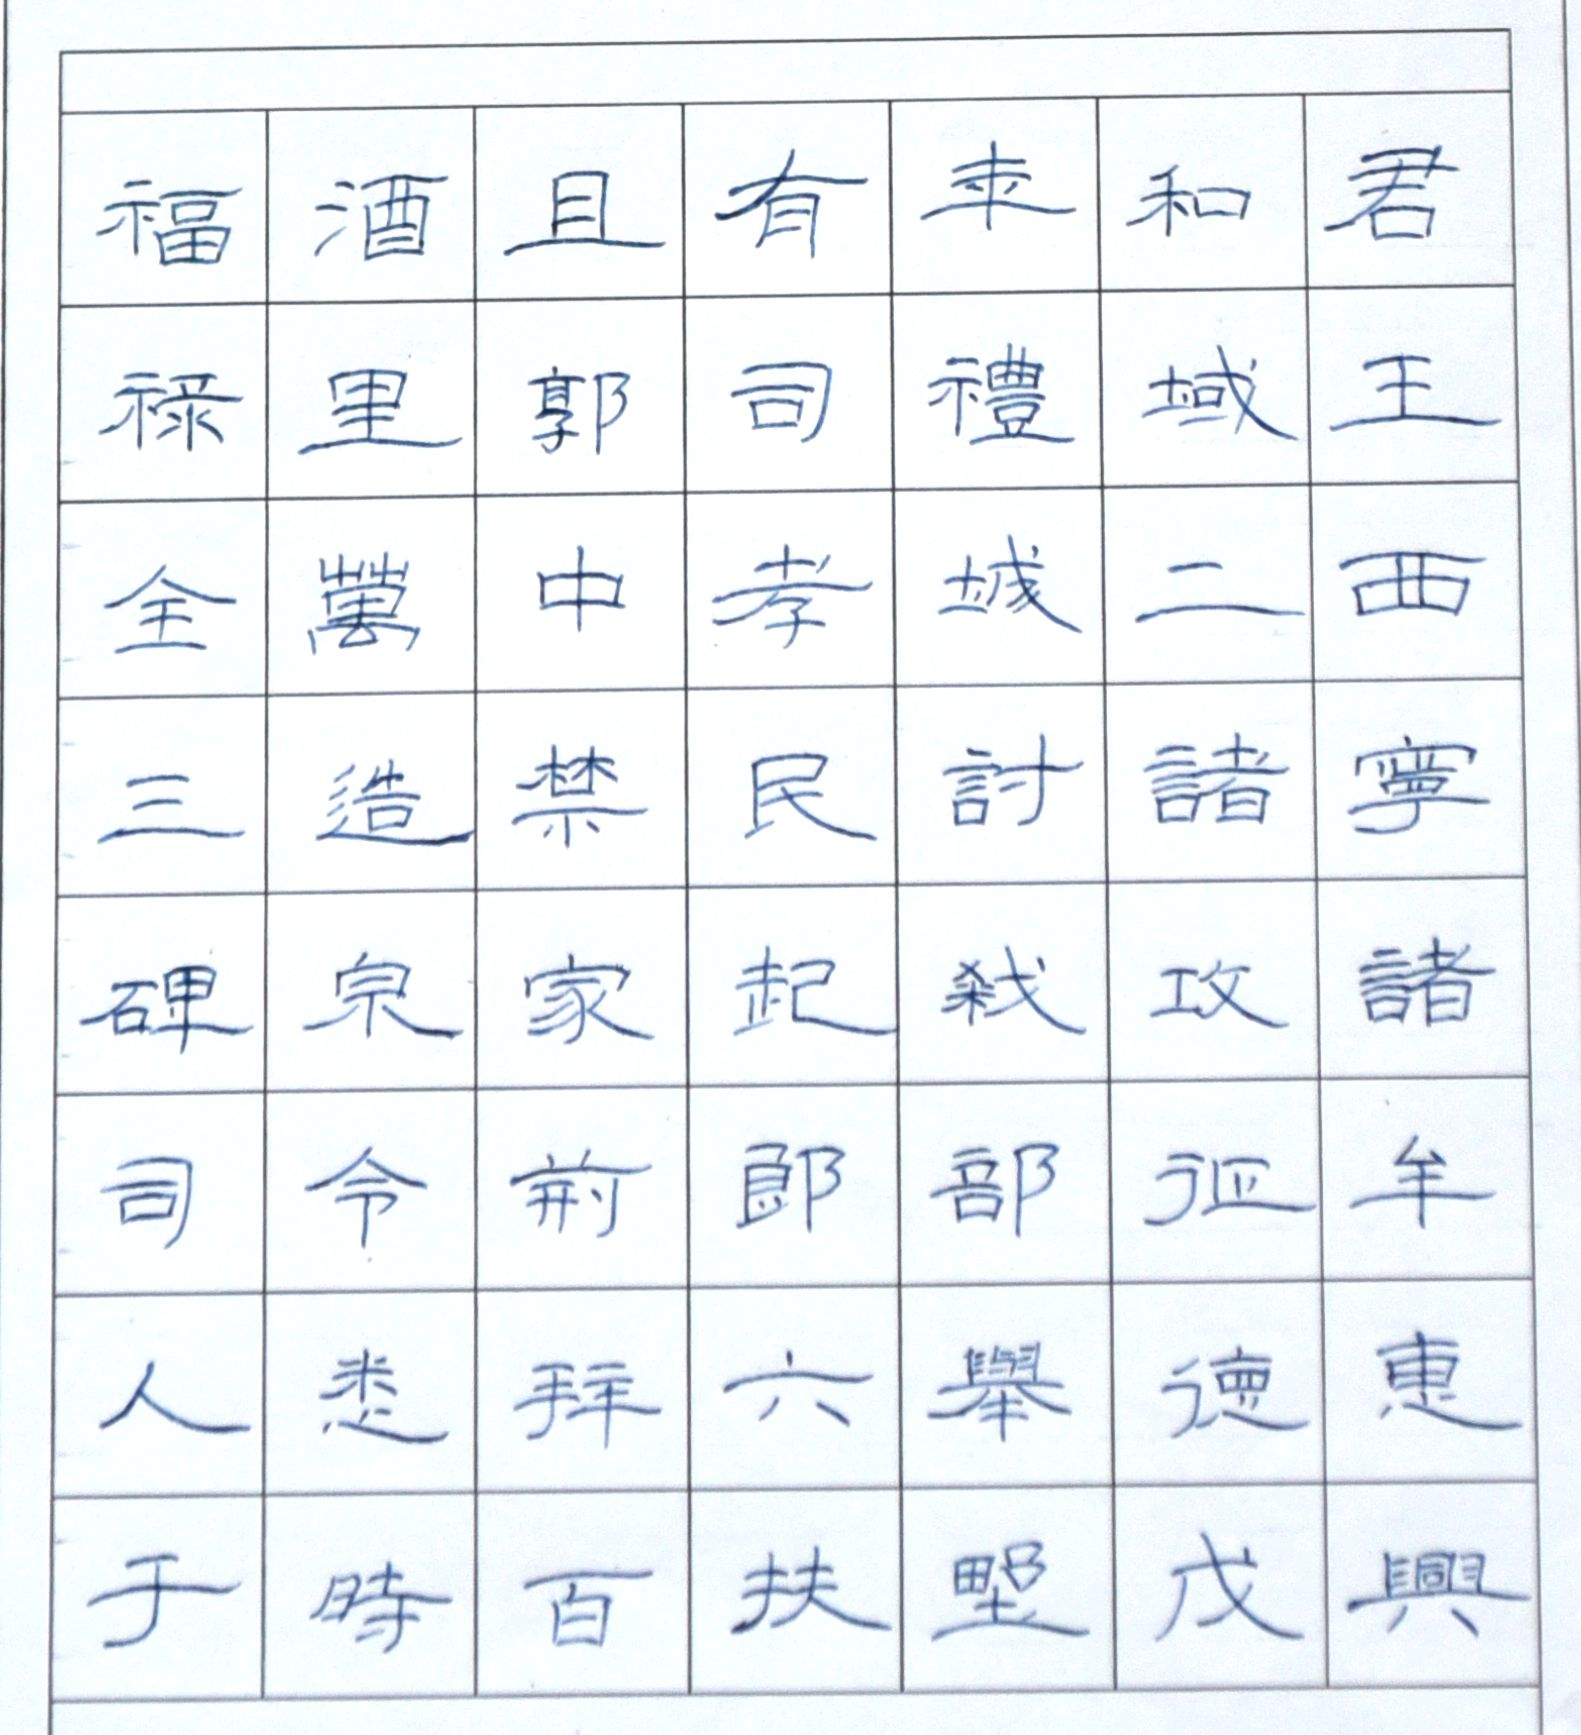 君王西寧諸牟惠興
和域二諸攻征德戊
年禮城討殺部舉野
有司孝民起郎六扶
且郭中禁家前拜百
酒里萬造泉令悉時
福祿全三碑司人于